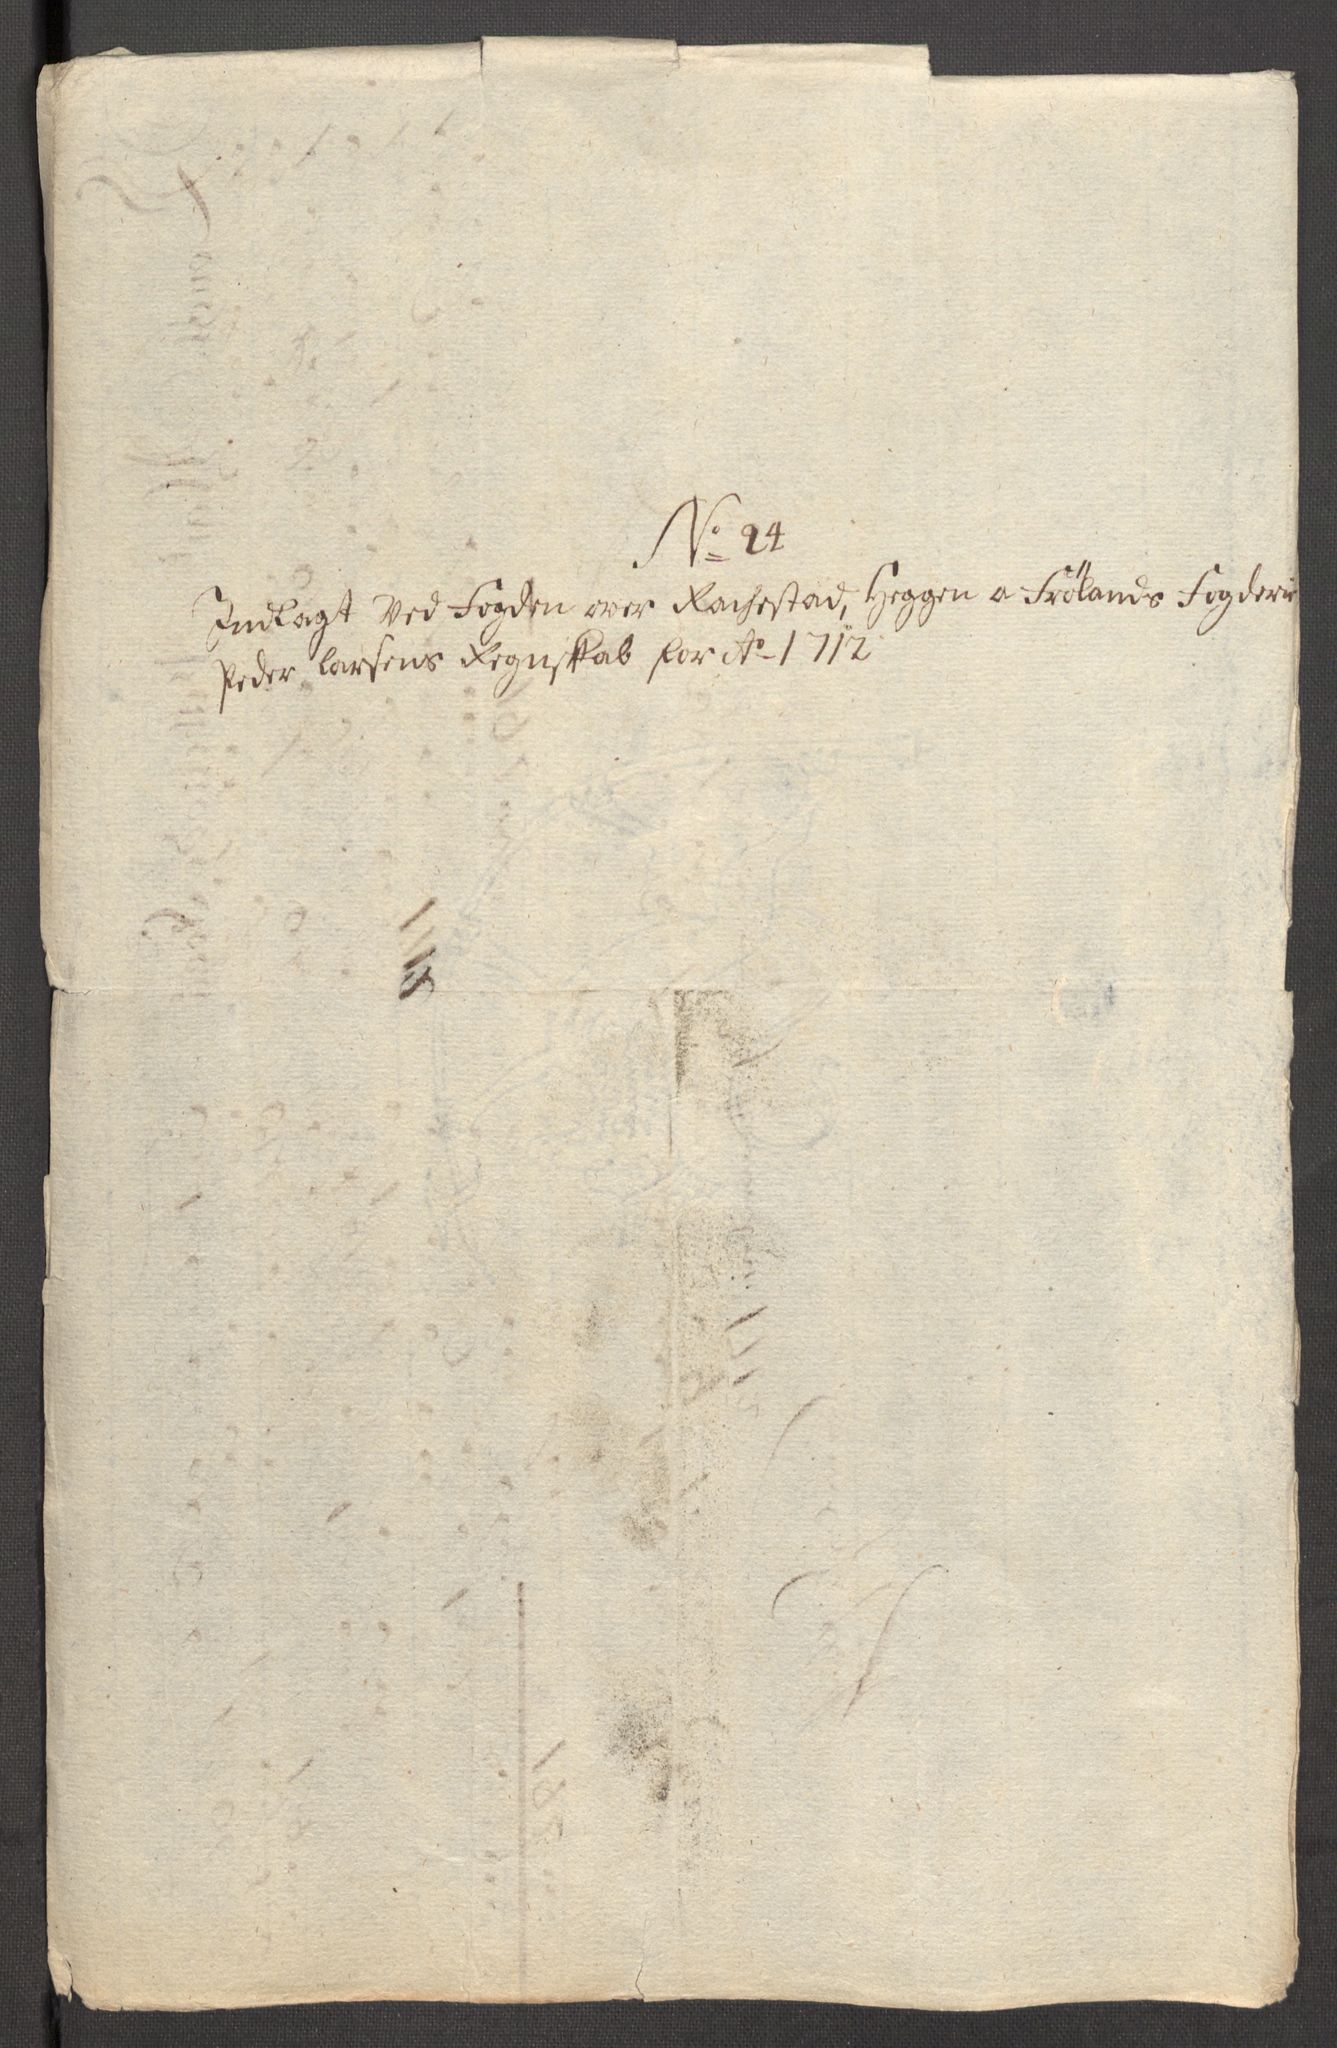 No 24
Indlagt Ved Fogden over Rachestad, Heggen o Frölands Fogderie
Peder Larsens Regnskab for Ao 1712